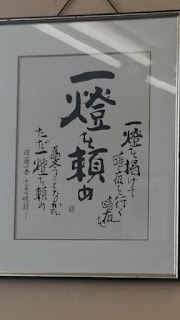 一燈を提げて
暗夜を行く暗夜を
一燈を頼め
憂うことなかれ
ただ一燈を頼め
佐藤一斎 言志晩録